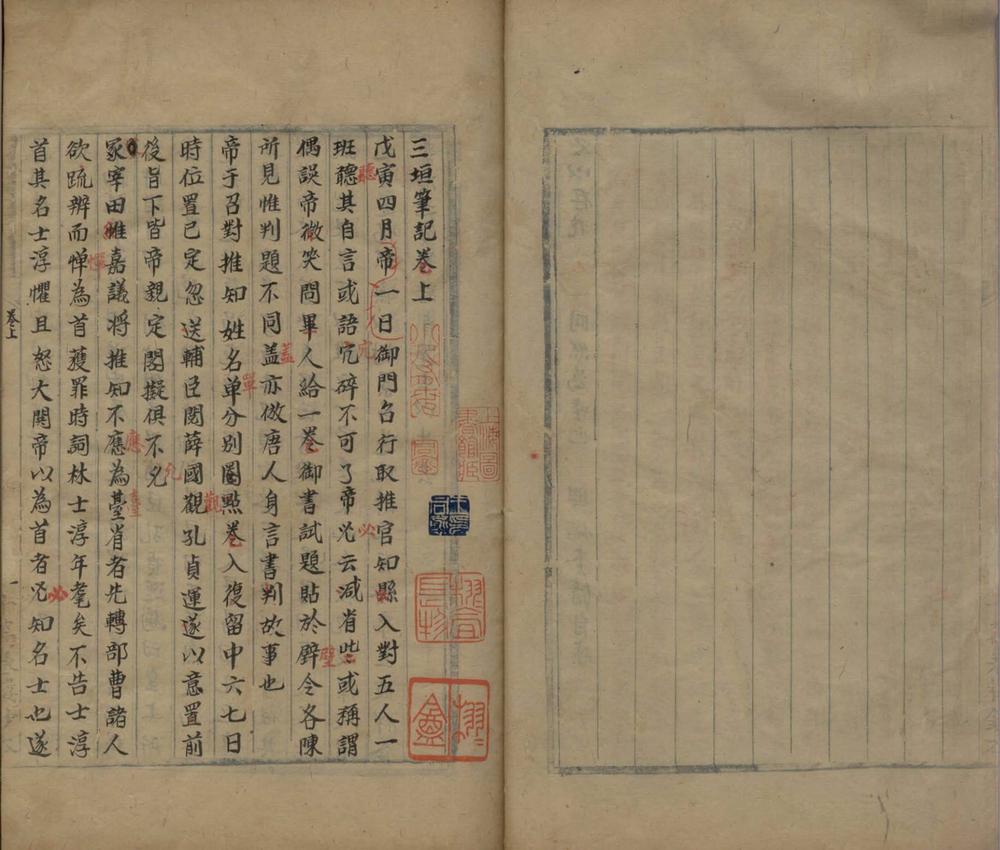 三垣筆記卷上
戊寅四月帝一日御門召行取推官知縣入對五人一
班聽其自言或語冗碎不可了帝必云減省些或稱謂
偶誤帝微笑問畢人給一卷御書試題貼於壁令各陳
所見惟判題不同蓋亦倣唐人身言書判故事也
帝于召對推知姓名单分別圈點卷入復留中六七日
時位置已定忽送輔臣閱薛國觀孔貞運遂以意置前
後旨下皆帝親定閣擬俱不允
冢宰田惟嘉議將推知不應為臺省者先轉部曹諸人
欲疏辨而憚為首獲罪時詞林士淳年耄矣不告士淳
首其名士淳懼且怒大閧帝以為首者必知名士也遂
卷上
一
聽
冗
必
壁
蓋
單
觀
允
應
臺
憚
必